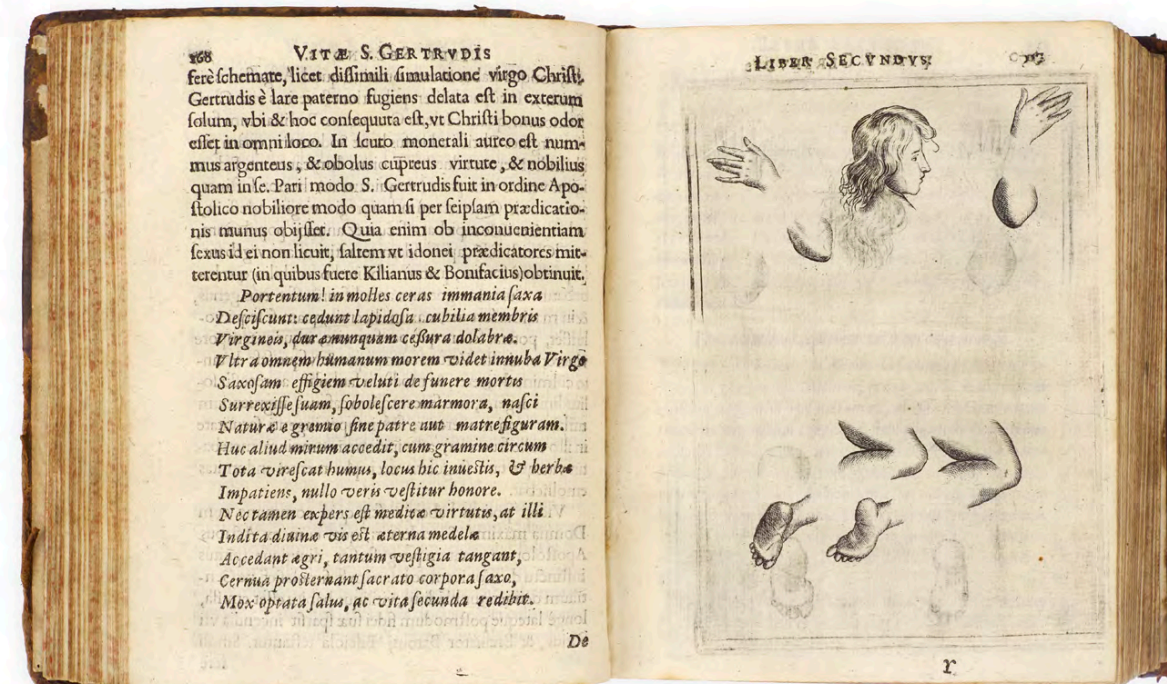 168 VITÆ S. GERTRVDIS
ferè ſchemate, licet diſſimili ſimulatione virgo Chriſti
Gertrudis è lare paterno fugiens delata eſt in exterum
ſolum, vbi & hoc conſequuta eſt, vt Chriſti bonus odor
eſſet in omni loco. In ſcuto monetali aureo eſt num-
mus argenteus, & obolus cupreus virtute, & nobilius
quam in ſe. Pari modo S. Gertrudis fuit in ordine Apo-
ſtolico nobiliore modo quam ſi per ſeipſam prædicatio-
nis munus obijſſet. Quia enim ob inconuenientiam
ſexus id ei non licuit, ſaltem vt idonei prædicatores mit-
terentur (in quibus fuere Kilianus & Bonifacius) obtinuit.
Portentum! in molles ceras immania ſaxa
Deſciſcunt: cedunt lapidoſa cubilia membris
Virgineis, duræ nunquam ceſſura dolabræ.
Vltra omnem humanum morem videt innuba Virgo
Saxoſam effigiem veluti de funere mortis
Surrexiſſe ſuam, ſoboleſcere marmora, naſci
Naturæ e gremio ſine patre aut matre figuram.
Huc aliud mirum accedit, cum gramine circum
Tota vireſcat humus, locus hic inueſtis, & herbæ
Impatiens, nullo veris veſtitur honore.
Nec tamen expers eſt medicæ virtutis, at illi
Indita diuinæ vis eſt æterna medelæ
Accedant ægri, tantum veſtigia tangant,
Cernua proſternant ſacrato corpora ſaxo,
Mox optata ſalus, ac vita ſecunda redibit.
De
LIBER SECVNDVS.
r